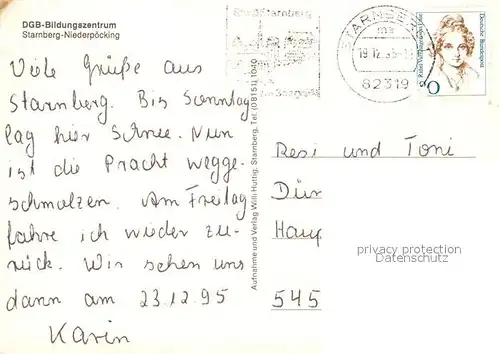 DGB-Bildungszentrum
Starnberg-Niederpöcking
Viele Grüße aus
Starnberg. Bis Sonntag
lag hier Schnee. Nun
ist die Pracht wegge-
schmolzen. Am Freitag
fahre ich wieder zu-
rück. Wir sehen uns
dann am 23.12.95
Karin
Aufnahme und Verlag Willi Huttig, Starnberg, Tel. (08151) 1040
STARNBERG
82319
Deutsche Bundespost
Resi und Toni
Dür
Haup
545
privacy protection
Datenschutz